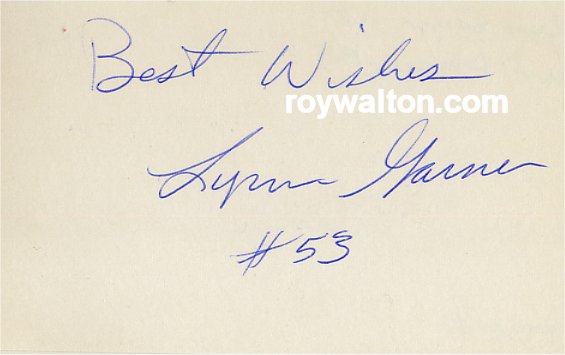 Best Wishes
roywalton.com
Lynn Garner
#53